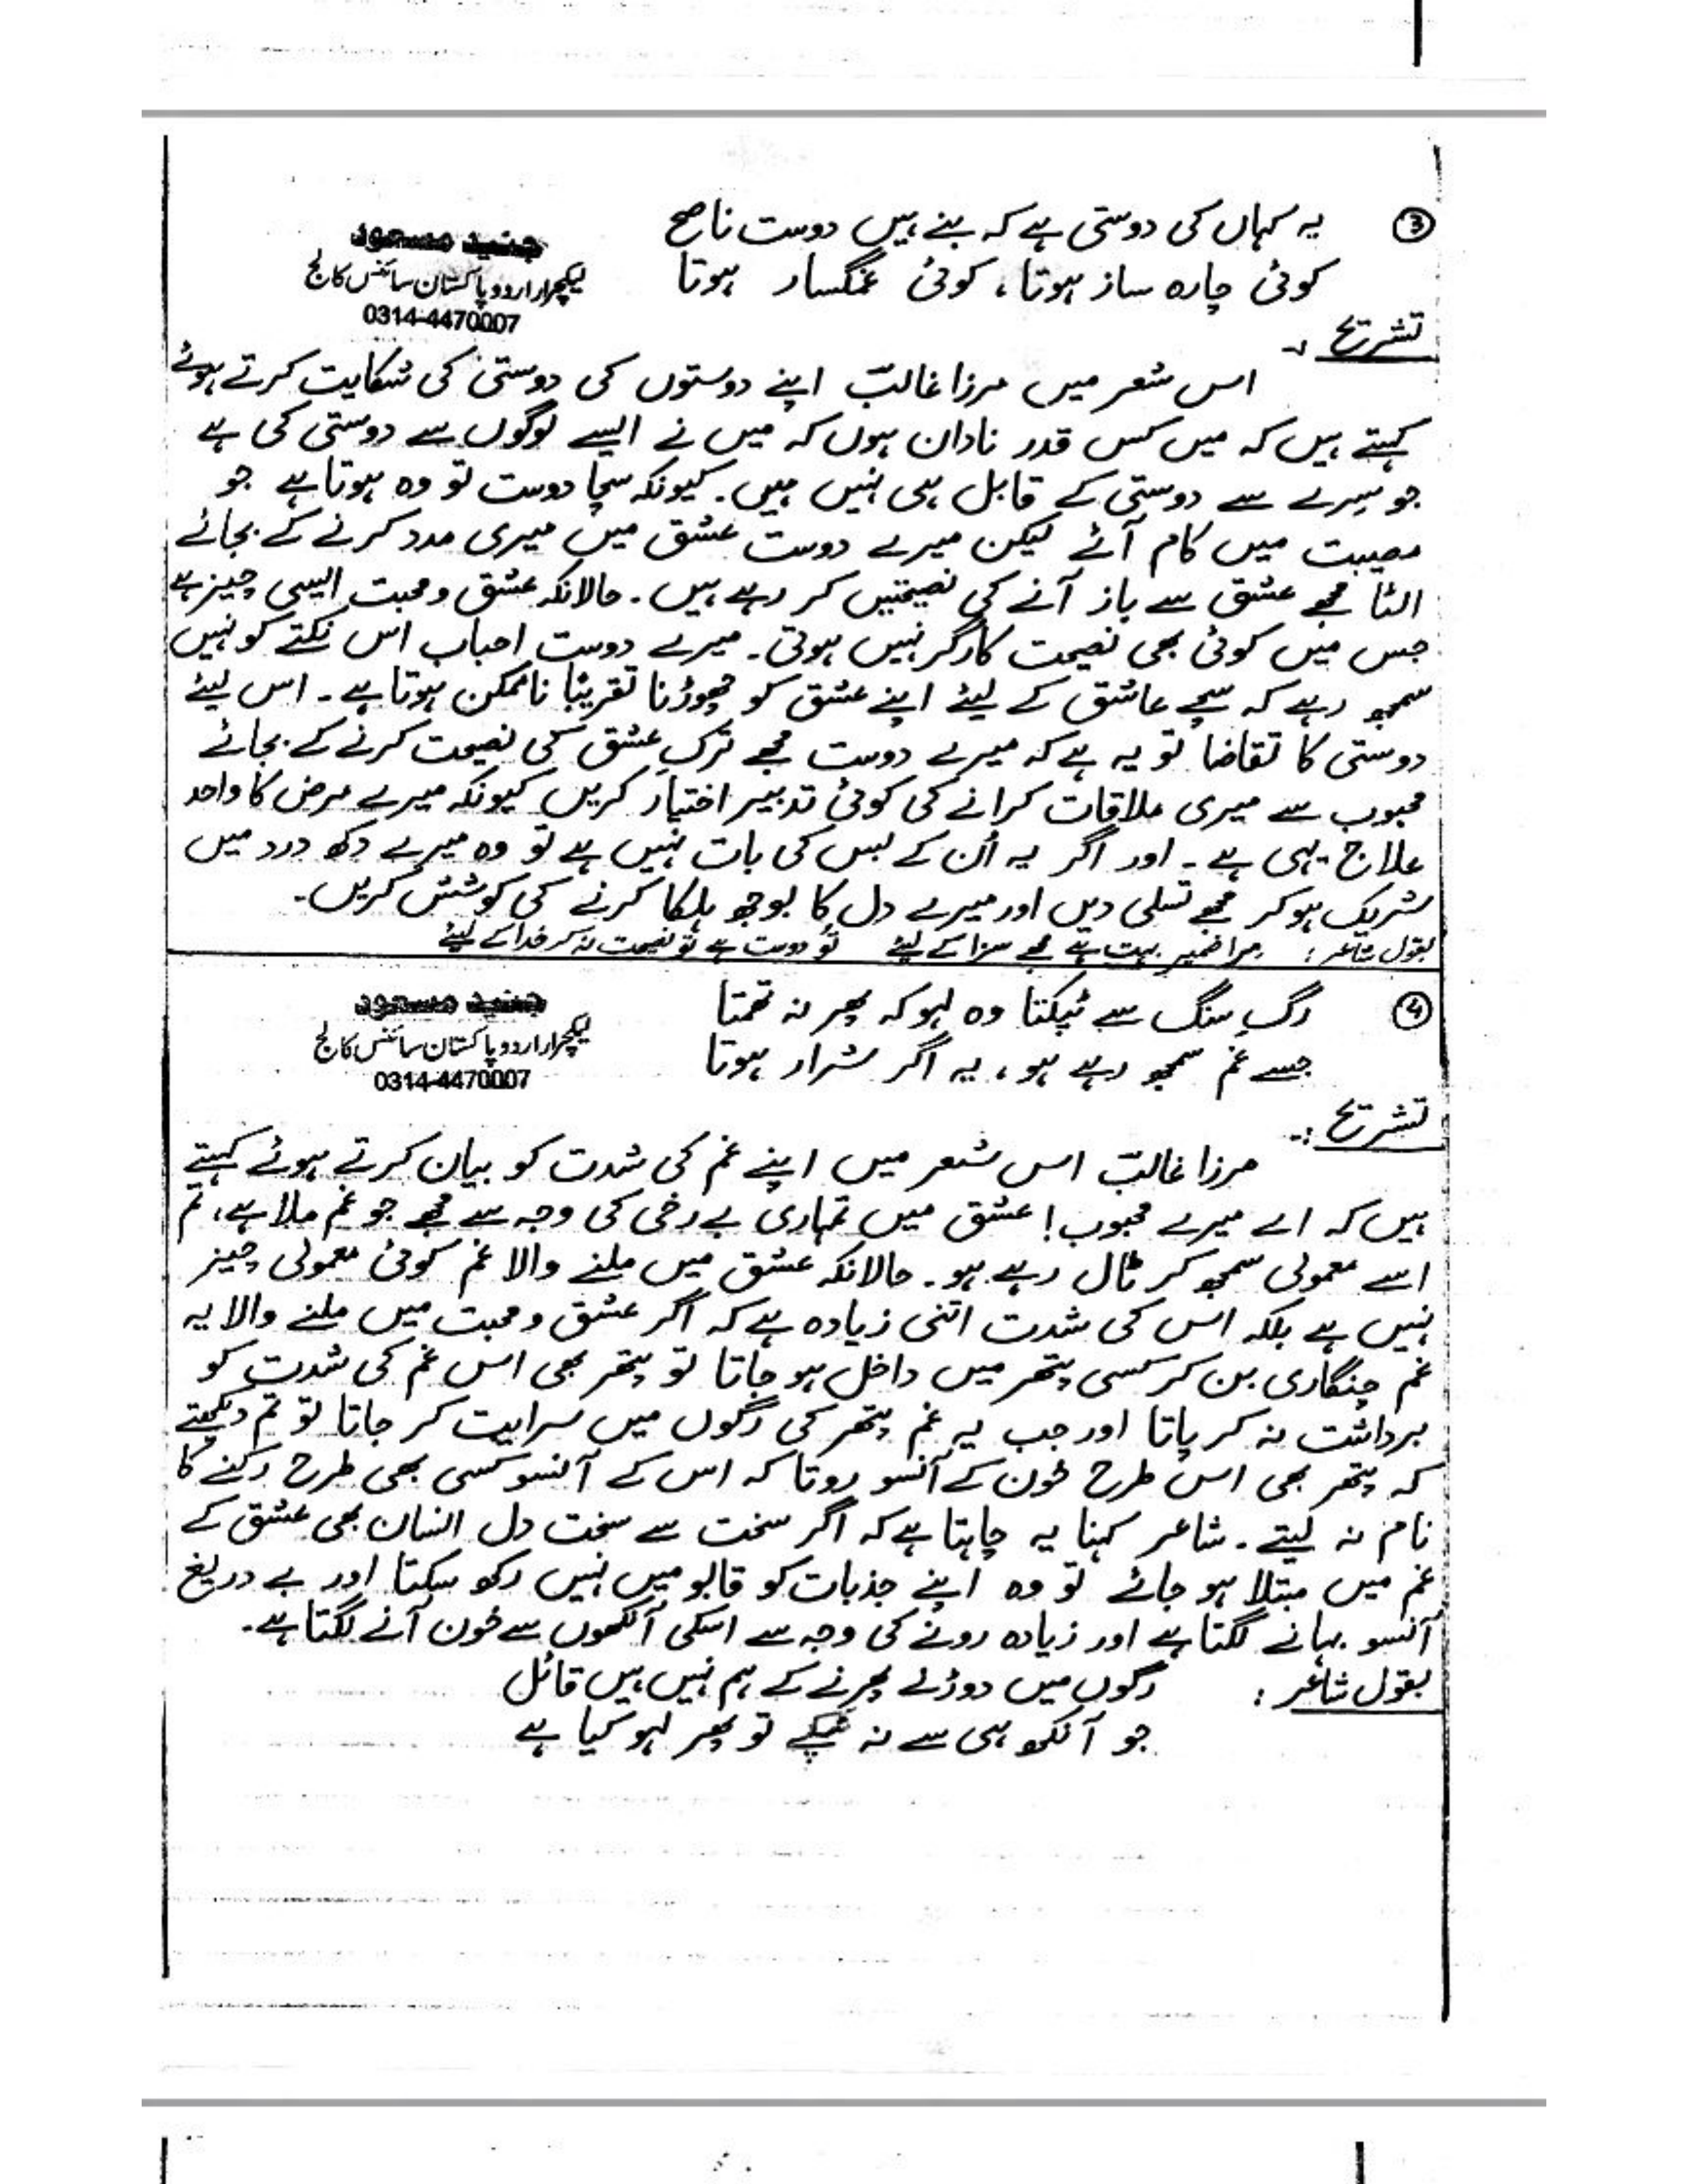 ③ یہ کہاں کی دوستی ہے کہ بنے ہیں دوست ناصح
کوئی چارہ ساز ہوتا، کوئی غمگسار ہوتا
جنید مسعود
لیکچرار اردو پاکستان سائنس کالج
0314-4470007
تشریح :۔
اس شعر میں مرزا غالبؔ اپنے دوستوں کی دوستی کی شکایت کرتے ہوئے
کہتے ہیں کہ میں کس قدر نادان ہوں کہ میں نے ایسے لوگوں سے دوستی کی ہے
جو سِرے سے دوستی کے قابل ہی نہیں ہیں۔ کیونکہ سچا دوست تو وہ ہوتا ہے جو
مصیبت میں کام آئے لیکن میرے دوست عشق میں میری مدد کرنے کے بجائے
الٹا مجھے عشق سے باز آنے کی نصیحتیں کر رہے ہیں۔ حالانکہ عشق و محبت ایسی چیز ہے
جس میں کوئی بھی نصیحت کارگر نہیں ہوتی۔ میرے دوست احباب اس نکتے کو نہیں
سمجھ رہے کہ سچے عاشق کے لیئے اپنے عشق کو چھوڑنا تقریبًا ناممکن ہوتا ہے۔ اس لیئے
دوستی کا تقاضا تو یہ ہے کہ میرے دوست مجھے ترکِ عشق کی نصیحت کرنے کے بجائے
محبوب سے میری ملاقات کرانے کی کوئی تدبیر اختیار کریں کیونکہ میرے مرض کا واحد
علاج یہی ہے۔ اور اگر یہ اُن کے بس کی بات نہیں ہے تو وہ میرے دکھ درد میں
شریک ہو کر مجھے تسلی دیں اور میرے دل کا بوجھ ہلکا کرنے کی کوشش کریں۔
بقول شاعر : مرا ضمیر بہت ہے مجھے سزا کے لیئے تُو دوست ہے تو نصیحت نہ کر خدا کے لیئے
④ رگِ سنگ سے ٹپکتا وہ لہو کہ پھر نہ تھمتا
جسے غم سمجھ رہے ہو، یہ اگر شرار ہوتا
جنید مسعود
لیکچرار اردو پاکستان سائنس کالج
0314-4470007
تشریح :۔
مرزا غالبؔ اس شعر میں اپنے غم کی شدت کو بیان کرتے ہوئے کہتے
ہیں کہ اے میرے محبوب! عشق میں تمہاری بے رخی کی وجہ سے مجھے جو غم ملا ہے، تم
اسے معمولی سمجھ کر ٹال رہے ہو۔ حالانکہ عشق میں ملنے والا غم کوئی معمولی چیز
نہیں ہے بلکہ اس کی شدت اتنی زیادہ ہے کہ اگر عشق و محبت میں ملنے والا یہ
غم چنگاری بن کر کسی پتھر میں داخل ہو جاتا تو پتھر بھی اس غم کی شدت کو
برداشت نہ کر پاتا اور جب یہ غم پتھر کی رگوں میں سرایت کر جاتا تو تم دیکھتے
کہ پتھر بھی اس طرح خون کے آنسو روتا کہ اس کے آنسو کسی بھی طرح رکنے کا
نام نہ لیتے۔ شاعر کہنا یہ چاہتا ہے کہ اگر سخت سے سخت دل انسان بھی عشق کے
غم میں مبتلا ہو جائے تو وہ اپنے جذبات کو قابو میں نہیں رکھ سکتا اور بے دریغ
آنسو بہانے لگتا ہے اور زیادہ رونے کی وجہ سے اسکی آنکھوں سے خون آنے لگتا ہے۔
بقول شاعر : رگوں میں دوڑنے پھرنے کے ہم نہیں ہیں قائل
جو آنکھ ہی سے نہ ٹپکے تو پھر لہو کیا ہے